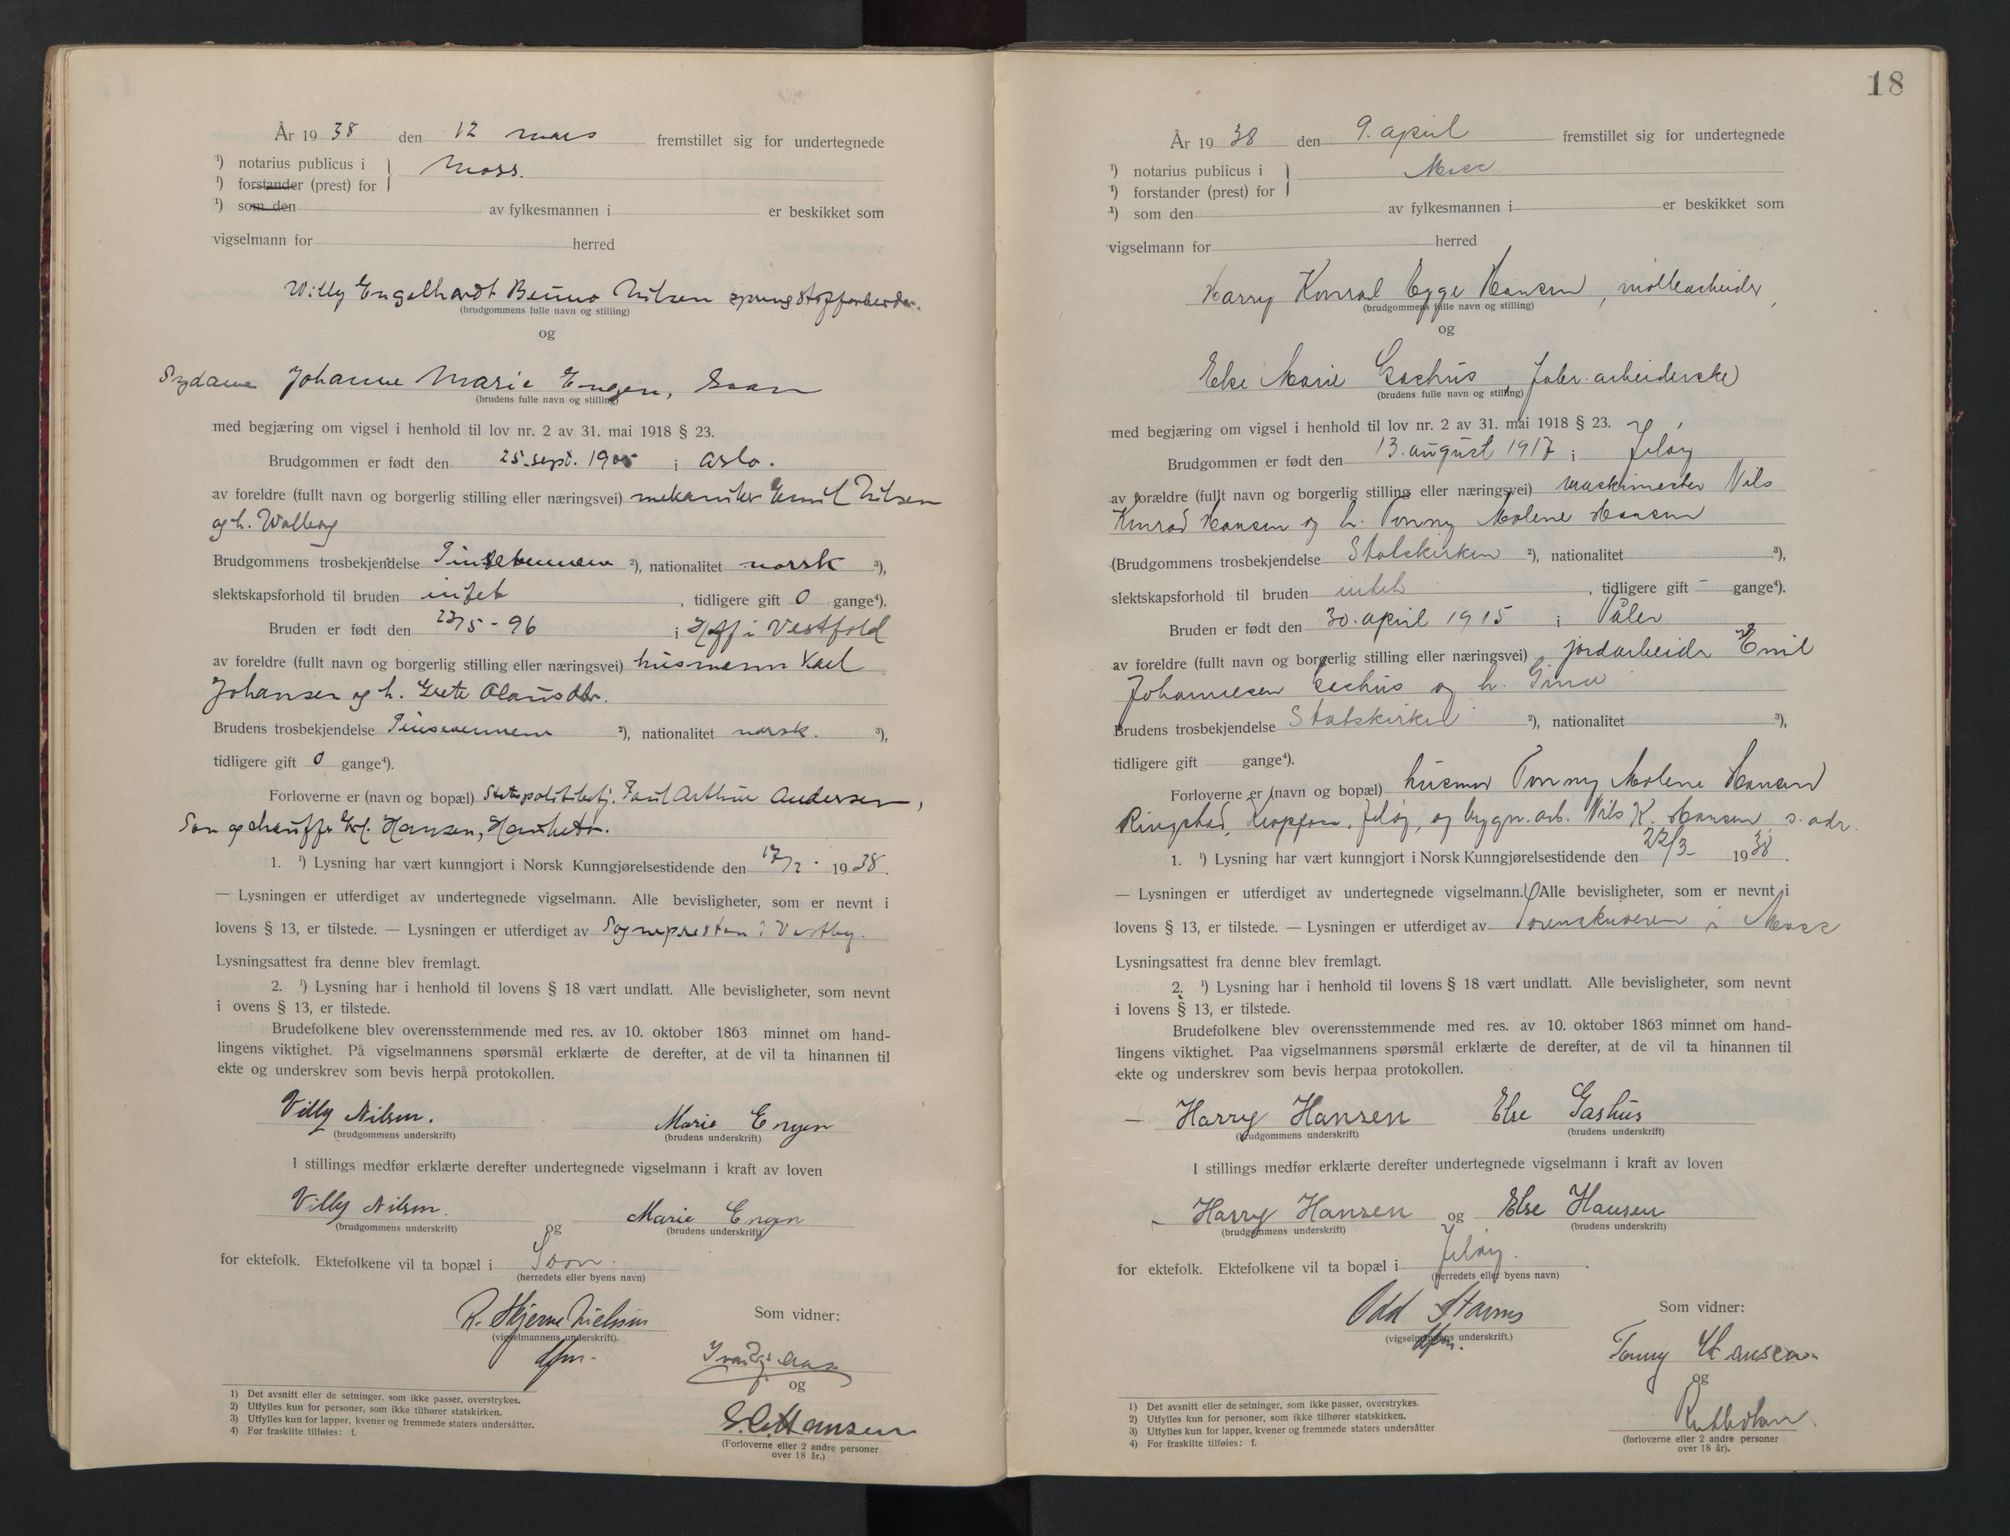 År 1938 den 12 mars fremstillet sig for undertegnede
¹) notarius publicus i } Moss.
¹) forstander (prest) for
¹) som den av fylkesmannen i er beskikket som
vigselmann for herred
Willy Engelhardt Bruno Nilsen
(brudgommens fulle navn og stilling)
og
Sydame Johanne Marie Engen, Soon
(brudens fulle navn og stilling)
med begjæring om vigsel i henhold til lov nr. 2 av 31. mai 1918 § 23.
Brudgommen er født den 25. sept. 1905 i Oslo.
av foreldre (fullt navn og borgerlig stilling eller næringsvei) mekaniker Emil Nilsen
og h. Walborg
Brudgommens trosbekjendelse Pinsevennene ²), nationalitet norsk ³),
slektskapsforhold til bruden intet, tidligere gift 0 gange⁴).
Bruden er født den 23/5 - 96 i Hof i Vestfold
av foreldre (fullt navn og borgerlig stilling eller næringsvei) husmann Karl
Johansen og h. Grete Olausdtr.
Brudens trosbekjendelse Pinsevennene ²), nationalitet norsk. ³),
tidligere gift 0 gange⁴).
Forloverne er (navn og bopæl) Statspolitibetj. Paul Arthur Andersen,
Son og chauffør Hansen,
1. ¹) Lysning har vært kunngjort i Norsk Kunngjørelsestidende den 17/2 - 1938.
— Lysningen er utferdiget av undertegnede vigselmann. Alle bevisligheter, som er nevnt i
lovens § 13, er tilstede. — Lysningen er utferdiget av Sognepresten i Vestby.
Lysningsattest fra denne blev fremlagt.
2. ¹) Lysning har i henhold til lovens § 18 vært undlatt. Alle bevisligheter, som nevnt
i ovens § 13, er tilstede.
Brudefolkene blev overensstemmende med res. av 10. oktober 1863 minnet om hand-
lingens viktighet. På vigselmannens spørsmål erklærte de derefter, at de vil ta hinannen til
ekte og underskrev som bevis herpå protokollen.
Villy Nilsen. Marie Engen
(brudgommens underskrift) (brudens underskrift)
I stillings medfør erklærte derefter undertegnede vigselmann i kraft av loven
Villy Nilsen. og Marie Engen
(brudgommens underskrift) (brudens underskrift)
for ektefolk. Ektefolkene vil ta bopæl i Soon.
(herredets eller byens navn)
R. Hjerne Nielsen Som vidner:
(vigselmannens underskrift).
dfm.
og
Hansen
(Forloverne eller 2 andre personer
over 18 år.)
1) Det avsnitt eller de setninger, som ikke passer, overstrykes.
2) Utfylles kun for personer, som ikke tilhører statskirken.
3) Utfylles kun for lapper, kvener og fremmede staters undersåtter.
4) For fraskilte tilføies: f.
18
År 1938 den 9. april fremstillet sig for undertegnede
¹) notarius publicus i } Moss
¹) forstander (prest) for
¹) som den av fylkesmannen i er beskikket som
vigselmann for herred
Harry Konrad Hansen, møllearbeider,
(brudgommens fulle navn og stilling)
og
Else Marie Gashus, fabr. arbeiderske
(brudens fulle navn og stilling)
med begjæring om vigsel i henhold til lov nr. 2 av 31. mai 1918 § 23.
Brudgommen er født den 13. august 1917 i Jeløy
av forældre (fullt navn og borgerlig stilling eller næringsvei) maskinmester Nils
Konrad Hansen og h. Tonny Malene Hansen
(Brudgommens trosbekjendelse Statskirken ²), nationalitet ³),
slektskapsforhold til bruden intet, tidligere gift - gange⁴).
Bruden er født den 30. april 1915 i Våler
av foreldre (fullt navn og borgerlig stilling eller næringsvei) jordarbeider Emil
Johannesen Gashus og h. Gina
Brudens trosbekjendelse Statskirken ²), nationalitet ³),
tidligere gift gange⁴).
Forloverne er (navn og bopæl) husmor Tonny Malene Hansen
Ringstad, Jeløy, og bygn. arb. Nils K. Hansen, s. adr.
1. ¹) Lysning har vært kunngjort i Norsk Kunngjørelsestidende den 22/3 1938.
— Lysningen er utferdiget av undertegnede vigselmann. Alle bevisligheter, som er nevnt i
lovens § 13, er tilstede. — Lysningen er utferdiget av Sorenskriveren i Moss
Lysningsattest fra denne blev fremlagt.
2. ¹) Lysning har i henhold til lovens § 18 vært undlatt. Alle bevisligheter, som nevnt
i lovens § 13, er tilstede.
Brudefolkene blev overensstemmende med res. av 10. oktober 1863 minnet om hand-
lingens viktighet. Paa vigselmannens spørsmål erklærte de derefter, at de vil ta hinannen til
ekte og underskrev som bevis herpaa protokollen.
— Harry Hansen Else Gashus
(brudgommens underskrift) (brudens underskrift)
I stillings medfør erklærte derefter undertegnede vigselmann i kraft av loven
– Harry Hansen og Else Hansen
(brudgommens underskrift) (brudens underskrift)
for ektefolk. Ektefolkene vil ta bopæl i Jeløy.
(herredets eller byens navn)
Odd Stavns Som vidner:
(vigselmannens underskrift.)
dfm.
Tonny Hansen
og
(forloverne eller 2 andre personer
over 18 år.)
1) Det avsnitt eller de setninger, som ikke passer, overstrykes.
2) Utfylles kun for personer, som ikke tilhører statskirken.
3) Utfylles kun for lapper, kvener og fremmede staters undersåtter
4) For fraskilte tilføies: f.